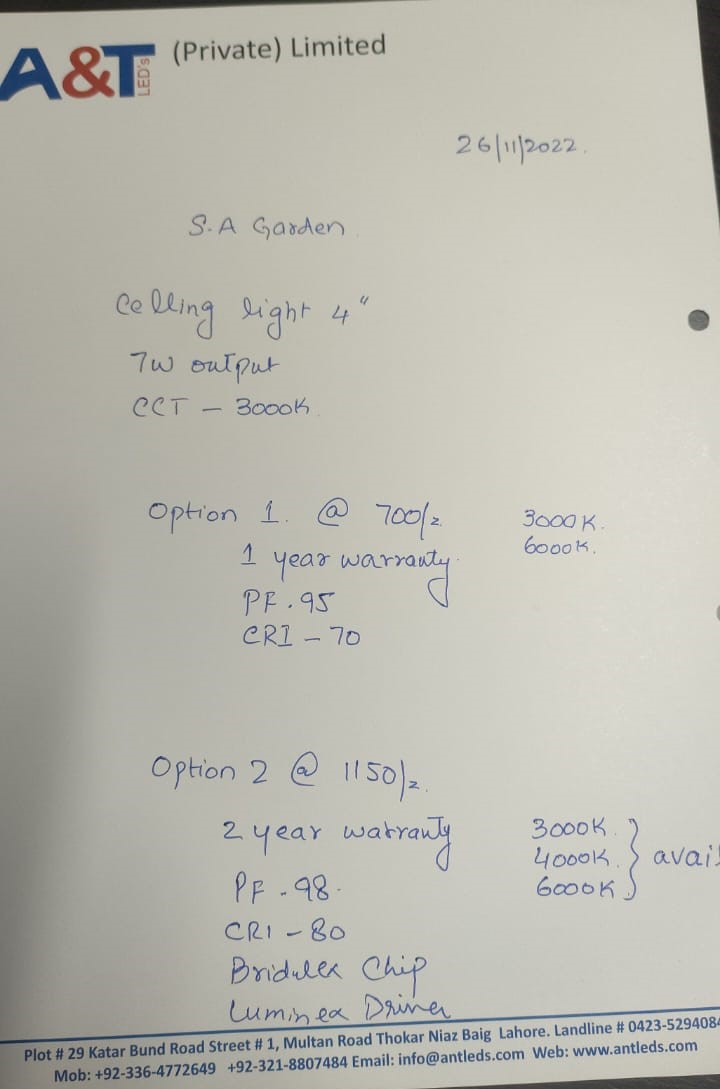 A&T LED's (Private) Limited
26/11/2022.
S.A Garden
Celling light 4"
7w output
CCT — 3000K
Option 1. @ 700/=
3000K.
1 year warranty.
6000K.
PF .95
CRI – 70
Option 2 @ 1150/=.
2 year warranty
3000K.
4000K. } avai
PF .98.
6000K
CRI – 80
Bridulex Chip
Luminea Driver
Plot # 29 Katar Bund Road Street # 1, Multan Road Thokar Niaz Baig Lahore. Landline # 0423-5294084
Mob: +92-336-4772649 +92-321-8807484 Email: info@antleds.com Web: www.antleds.com